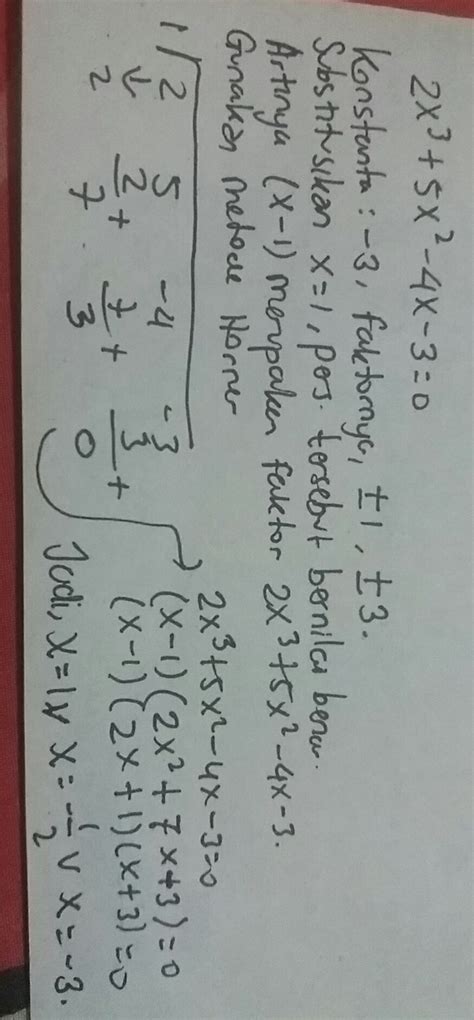 2x³ + 5x² - 4x - 3 = 0
Konstanta : -3, faktornya, ±1, ±3.
Substitusikan x=1, pers. tersebut bernilai benar.
Artinya (x-1) merupakan faktor 2x³+5x²-4x-3.
Gunakan metode Horner
1/ 2 5 -4 -3
2 7 3 +
2 7 3 0
2x³+5x²-4x-3=0
(x-1)(2x²+7x+3)=0
(x-1)(2x+1)(x+3)=0
Jadi, x=1 ∨ x=-1/2 ∨ x=-3.